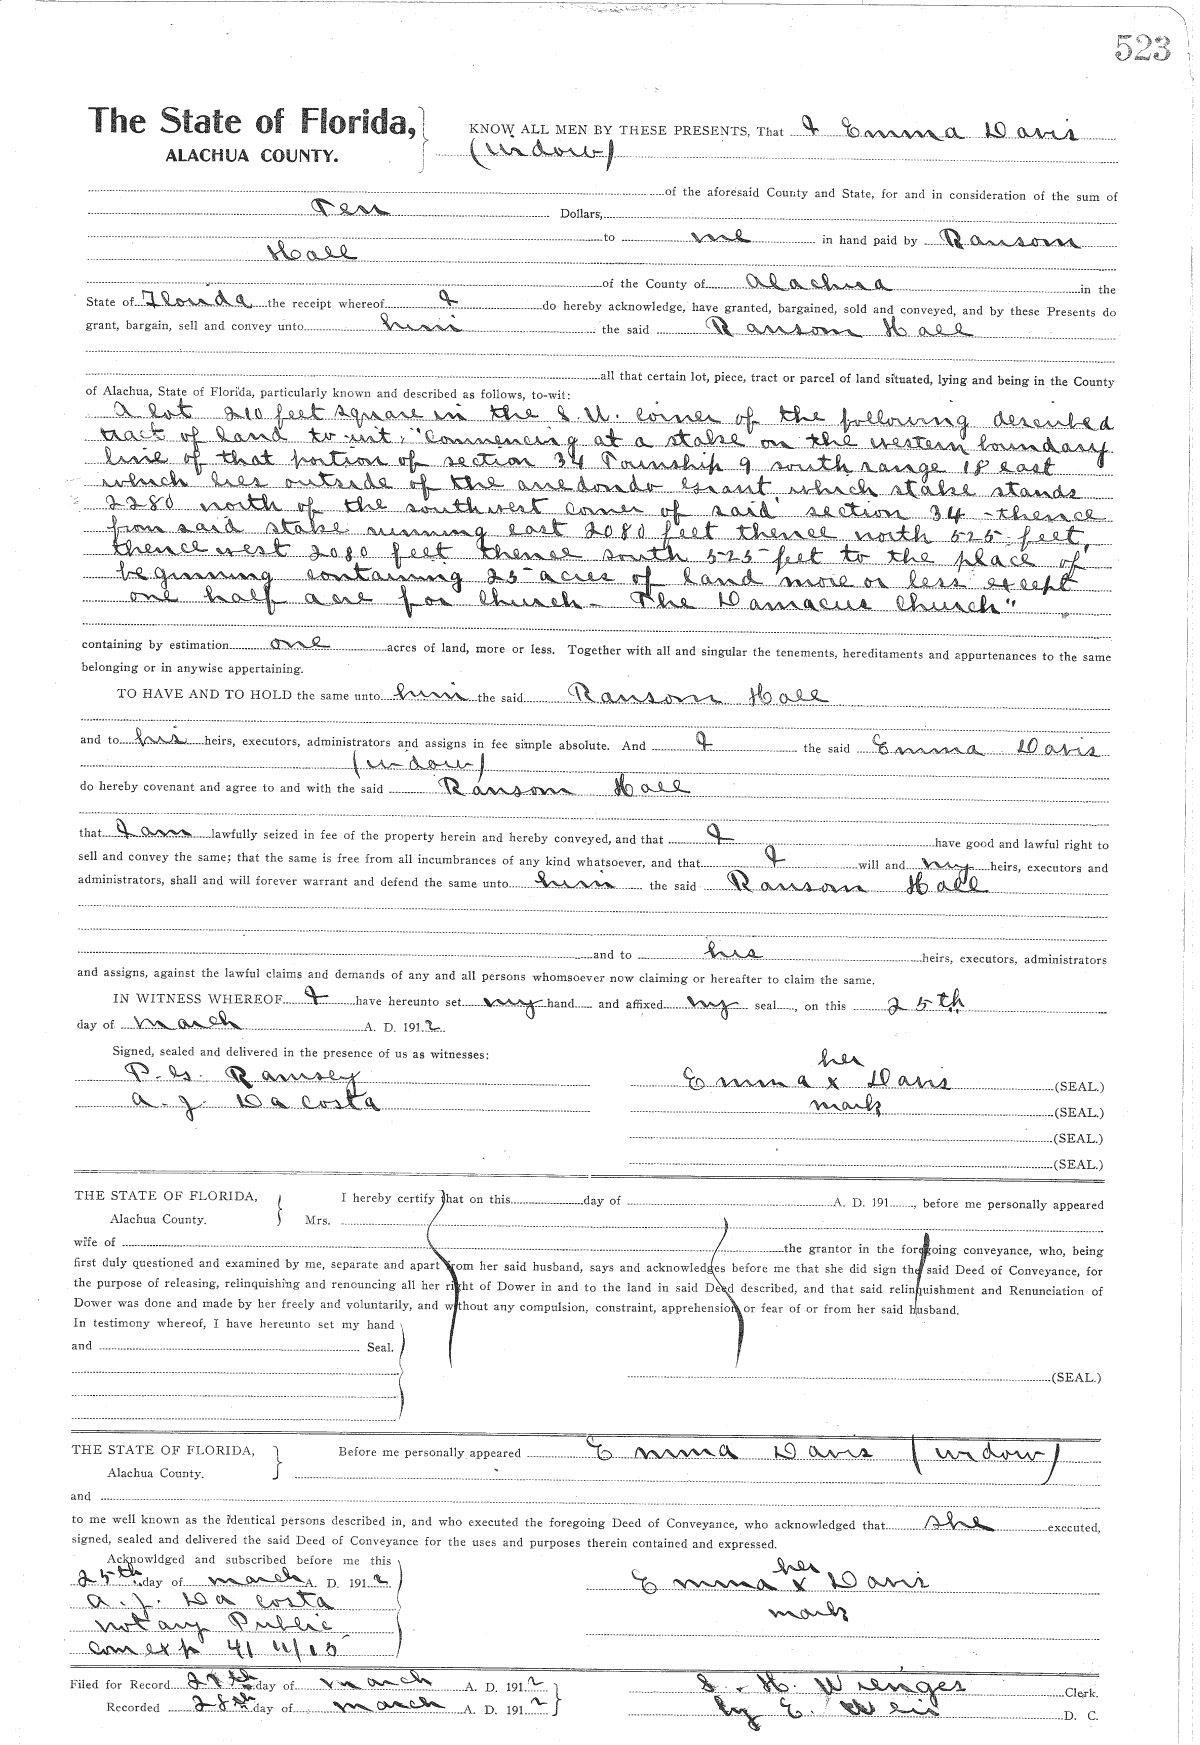 523
The State of Florida,
ALACHUA COUNTY.
KNOW ALL MEN BY THESE PRESENTS, That I Emma Davis
(widow)
of the aforesaid County and State, for and in consideration of the sum of
Ten Dollars,
to me in hand paid by Ransom
Hall
of the County of Alachua in the
State of Florida the receipt whereof I do hereby acknowledge, have granted, bargained, sold and conveyed, and by these Presents do
grant, bargain, sell and convey unto him the said Ransom Hall
all that certain lot, piece, tract or parcel of land situated, lying and being in the County
of Alachua, State of Florida, particularly known and described as follows, to-wit:
A lot 210 feet square in the S.W. corner of the following described
tract of land to-wit, "Commencing at a stake on the western boundary
line of that portion of section 34 Township 9 south range 18 east
which lies outside of the aredondo Grant which stake stands
2280 north of the southwest corner of said section 34 - thence
from said stake running east 2080 feet thence north 525 feet,
thence west 2080 feet thence south 525 feet to the place of
beginning containing 25 acres of land more or less except
one half acre for Church - The Damacus Church"
containing by estimation one acres of land, more or less. Together with all and singular the tenements, hereditaments and appurtenances to the same
belonging or in anywise appertaining.
TO HAVE AND TO HOLD the same unto him the said Ransom Hall
and to his heirs, executors, administrators and assigns in fee simple absolute. And I the said Emma Davis
(widow)
do hereby covenant and agree to and with the said Ransom Hall
that I am lawfully seized in fee of the property herein and hereby conveyed, and that I have good and lawful right to
sell and convey the same; that the same is free from all incumbrances of any kind whatsoever, and that I will and my heirs, executors and
administrators, shall and will forever warrant and defend the same unto him the said Ransom Hall
and to his heirs, executors, administrators
and assigns, against the lawful claims and demands of any and all persons whomsoever now claiming or hereafter to claim the same.
IN WITNESS WHEREOF I have hereunto set my hand and affixed my seal, on this 25th
day of march A. D. 1912.
Signed, sealed and delivered in the presence of us as witnesses:
her
P. G. Ramsey Emma x Davis (SEAL.)
A. J. Da Costa mark (SEAL.)
(SEAL.)
(SEAL.)
THE STATE OF FLORIDA,
Alachua County.
I hereby certify that on this day of A. D. 191 , before me personally appeared
Mrs.
wife of the grantor in the foregoing conveyance, who, being
first duly questioned and examined by me, separate and apart from her said husband, says and acknowledges before me that she did sign the said Deed of Conveyance, for
the purpose of releasing, relinquishing and renouncing all her right of Dower in and to the land in said Deed described, and that said relinquishment and Renunciation of
Dower was done and made by her freely and voluntarily, and without any compulsion, constraint, apprehension or fear of or from her said husband.
In testimony whereof, I have hereunto set my hand
and Seal.
(SEAL.)
THE STATE OF FLORIDA,
Alachua County.
Before me personally appeared Emma Davis (widow)
and
to me well known as the identical persons described in, and who executed the foregoing Deed of Conveyance, who acknowledged that she executed,
signed, sealed and delivered the said Deed of Conveyance for the uses and purposes therein contained and expressed.
Acknowldged and subscribed before me this
25th day of march A. D. 1912
her
Emma x Davis
mark
A. J. Da Costa
notary Public
com exp
Filed for Record 28th day of march A. D. 1912
Recorded 28th day of march A. D. 1912
S. H. Wienges Clerk.
by E. D. C.